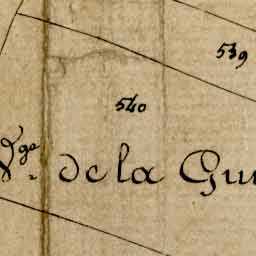 539
540
V.ge de la Gui